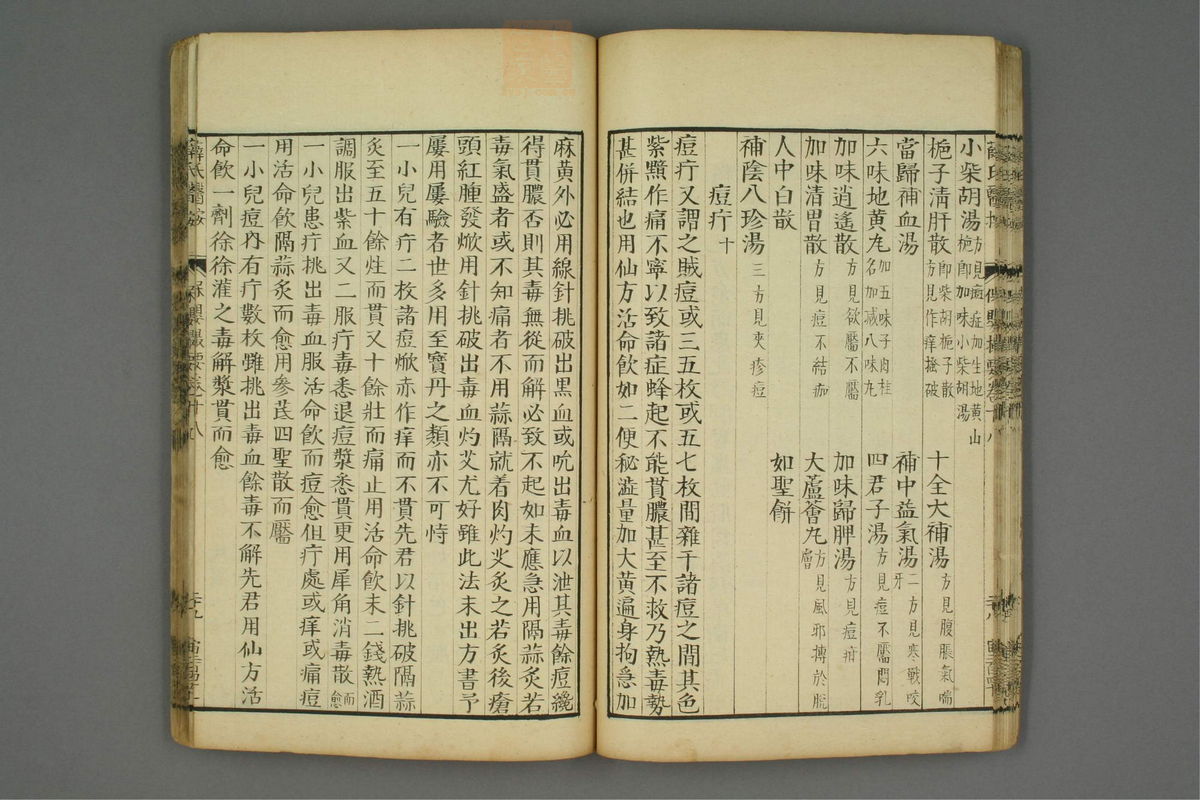 小柴胡湯方見痘症加生地黃山梔即加味小柴胡湯
梔子清肝散即柴胡梔子散方見作痒搔破
十全大補湯方見腹脹氣喘
當歸補血湯
補中益氣湯二方見寒戰咬牙
六味地黃丸加五味子肉桂名加减八味丸
四君子湯方見痘不靨悶乳
加味逍遙散方見欲靨不靨
加味歸脾湯方見痘疳
加味清胃散方見痘不結痂
大蘆薈丸方見風邪搏於脘
人中白散
如聖餅
補陰八珍湯三方見夾疹痘
痘疔十
痘疔又謂之賊痘或三五枚或五七枚間雜于諸痘之間其色
紫黯作痛不寧以致諸症蜂起不能貫膿甚至不救乃熱毒勢
甚併結也用仙方活命飲如二便秘澁量加大黃遍身拘急加
麻黃外必用線針挑破出黑血或吮出毒血以泄其毒餘痘纔
得貫膿否則其毒無從而解必致不起如未應急用隔蒜灸若
毒氣盛者或不知痛者不用蒜隔就着肉灼艾灸之若灸後瘡
頭紅腫發焮用針挑破出毒血灼艾尤好雖此法未出方書予
屢用屢驗者世多用至寶丹之類亦不可恃
一小兒有疔二枚諸痘焮赤作痒而不貫先君以針挑破隔蒜
灸至五十餘炷而貫又十餘壯而痛止用活命飲末二錢熱酒
調服出紫血又二服疔毒悉退痘漿悉貫更用犀角消毒散而愈
一小兒患疔挑出毒血服活命飲而痘愈但疔處或痒或痛痘
用活命飲隔蒜灸而愈用參芪四聖散而靨
一小兒痘內有疔數枚雖挑出毒血餘毒不解先君用仙方活
命飲一劑徐徐灌之毒解漿貫而愈